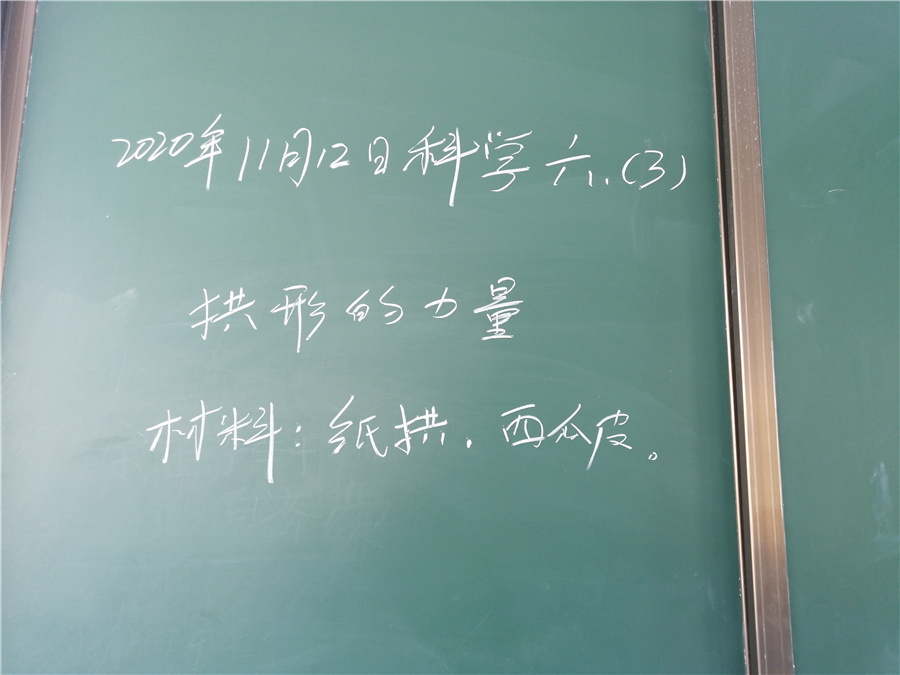 2020年11月12日科学六.(3)
拱形的力量
材料:纸拱,西瓜皮。